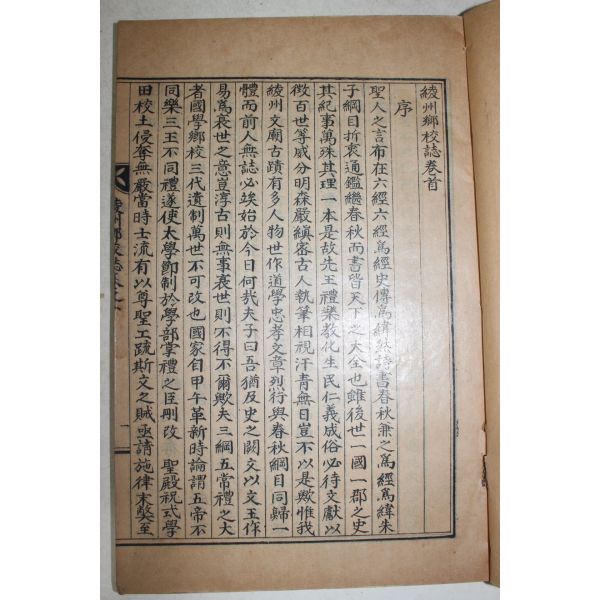 綾州鄉校誌卷首
序
聖人之言布在六經六經爲經史傳爲緯然詩書春秋兼之爲經爲緯朱
子綱目折衷通鑑繼春秋而書皆天下之大全也雖後世一國一郡之史
其紀事萬殊其理一本是故先王禮樂敎化生民仁義成俗必待文獻以
徵百世等威分明森嚴縝密古人執筆相視汗靑無日豈不以是歟惟我
綾州文廟古蹟有多人物世作道學忠孝文章烈行與春秋綱目同歸一
體而前人無誌必竢始於今日何哉夫子曰吾猶及史之闕文以文王作
易爲衰世之意豈淳古則無事衰世則不得不爾歟夫三綱五常禮之大
者國學鄕校三代遺制萬世不可改也國家自甲午革新時論謂五帝不
同樂三王不同禮遂使太學節制於學部掌禮之臣刪改 聖殿祝式學
田校土侵奪無嚴當時士流有以尊聖工疏斯文之賊亟請施律末獘至
綾州鄕校誌卷之
一